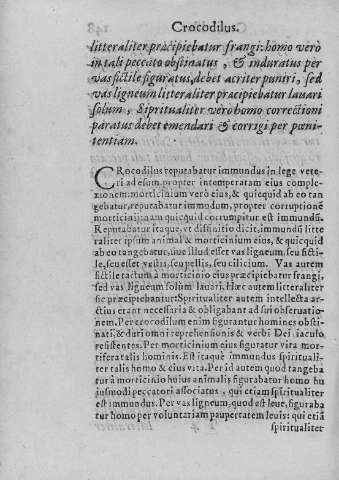 Crocodilus.
litteraliter præcipiebatur frangi: homo verò
in tali peccato obstinatus, & induratus per
vas fictile figuratus, debet acriter puniri, sed
vas ligneum litteraliter præcipiebatur lauari
solum, Sipritualiter verò homo correctioni
paratus debet emendari & corrigi per pœni
tentiam.
CRocodilus reputabatur immundus in lege vete-
ri ad esum, propter intemperatam eius comple-
xionem: morticinium verò eius, & quicquid ab eo tan
gebatur, reputabatur immũdum, propter corruptionẽ
morticinij: nam quicquid corrumpitur est immundũ.
Reputabatur itaque, vt disfinitio dicit, immundũ litte
raliter ipsum animal & morticinium eius, & quicquid
ab eo tangebatur, siue illud esset vas ligneum, seu ficti-
le, seu esset vestis, seu pellis, seu cilicium. Vas autem
fictile tactum à morticinio eius præcipiebatur frangi,
sed vas ligneum solum lauari. Hæc autem litteraliter
sic præcipiebantur: Spiritualiter autem intellecta ar-
ctius erant necessaria & obligabant ad sui obseruatio-
nem. Per crocodilum enim figurantur homines obsti-
nati, & duri omni reprehensionis & verbi Dei iaculo
resistentes. Per morticinium eius figuratur vita mor-
tifera talis hominis. Est itaquè immundus spirituali-
ter talis homo & eius vita. Per id autem quod tangeba
tur à morticinio huius animalis figurabatur homo hu
iusmodi peccatori associatus, qui etiam spiritualiter
est immundus. Per vas ligneum, quod est leue, figuraba
tur homo per voluntariam paupertatem leuis: qui etiã
spiritualiter